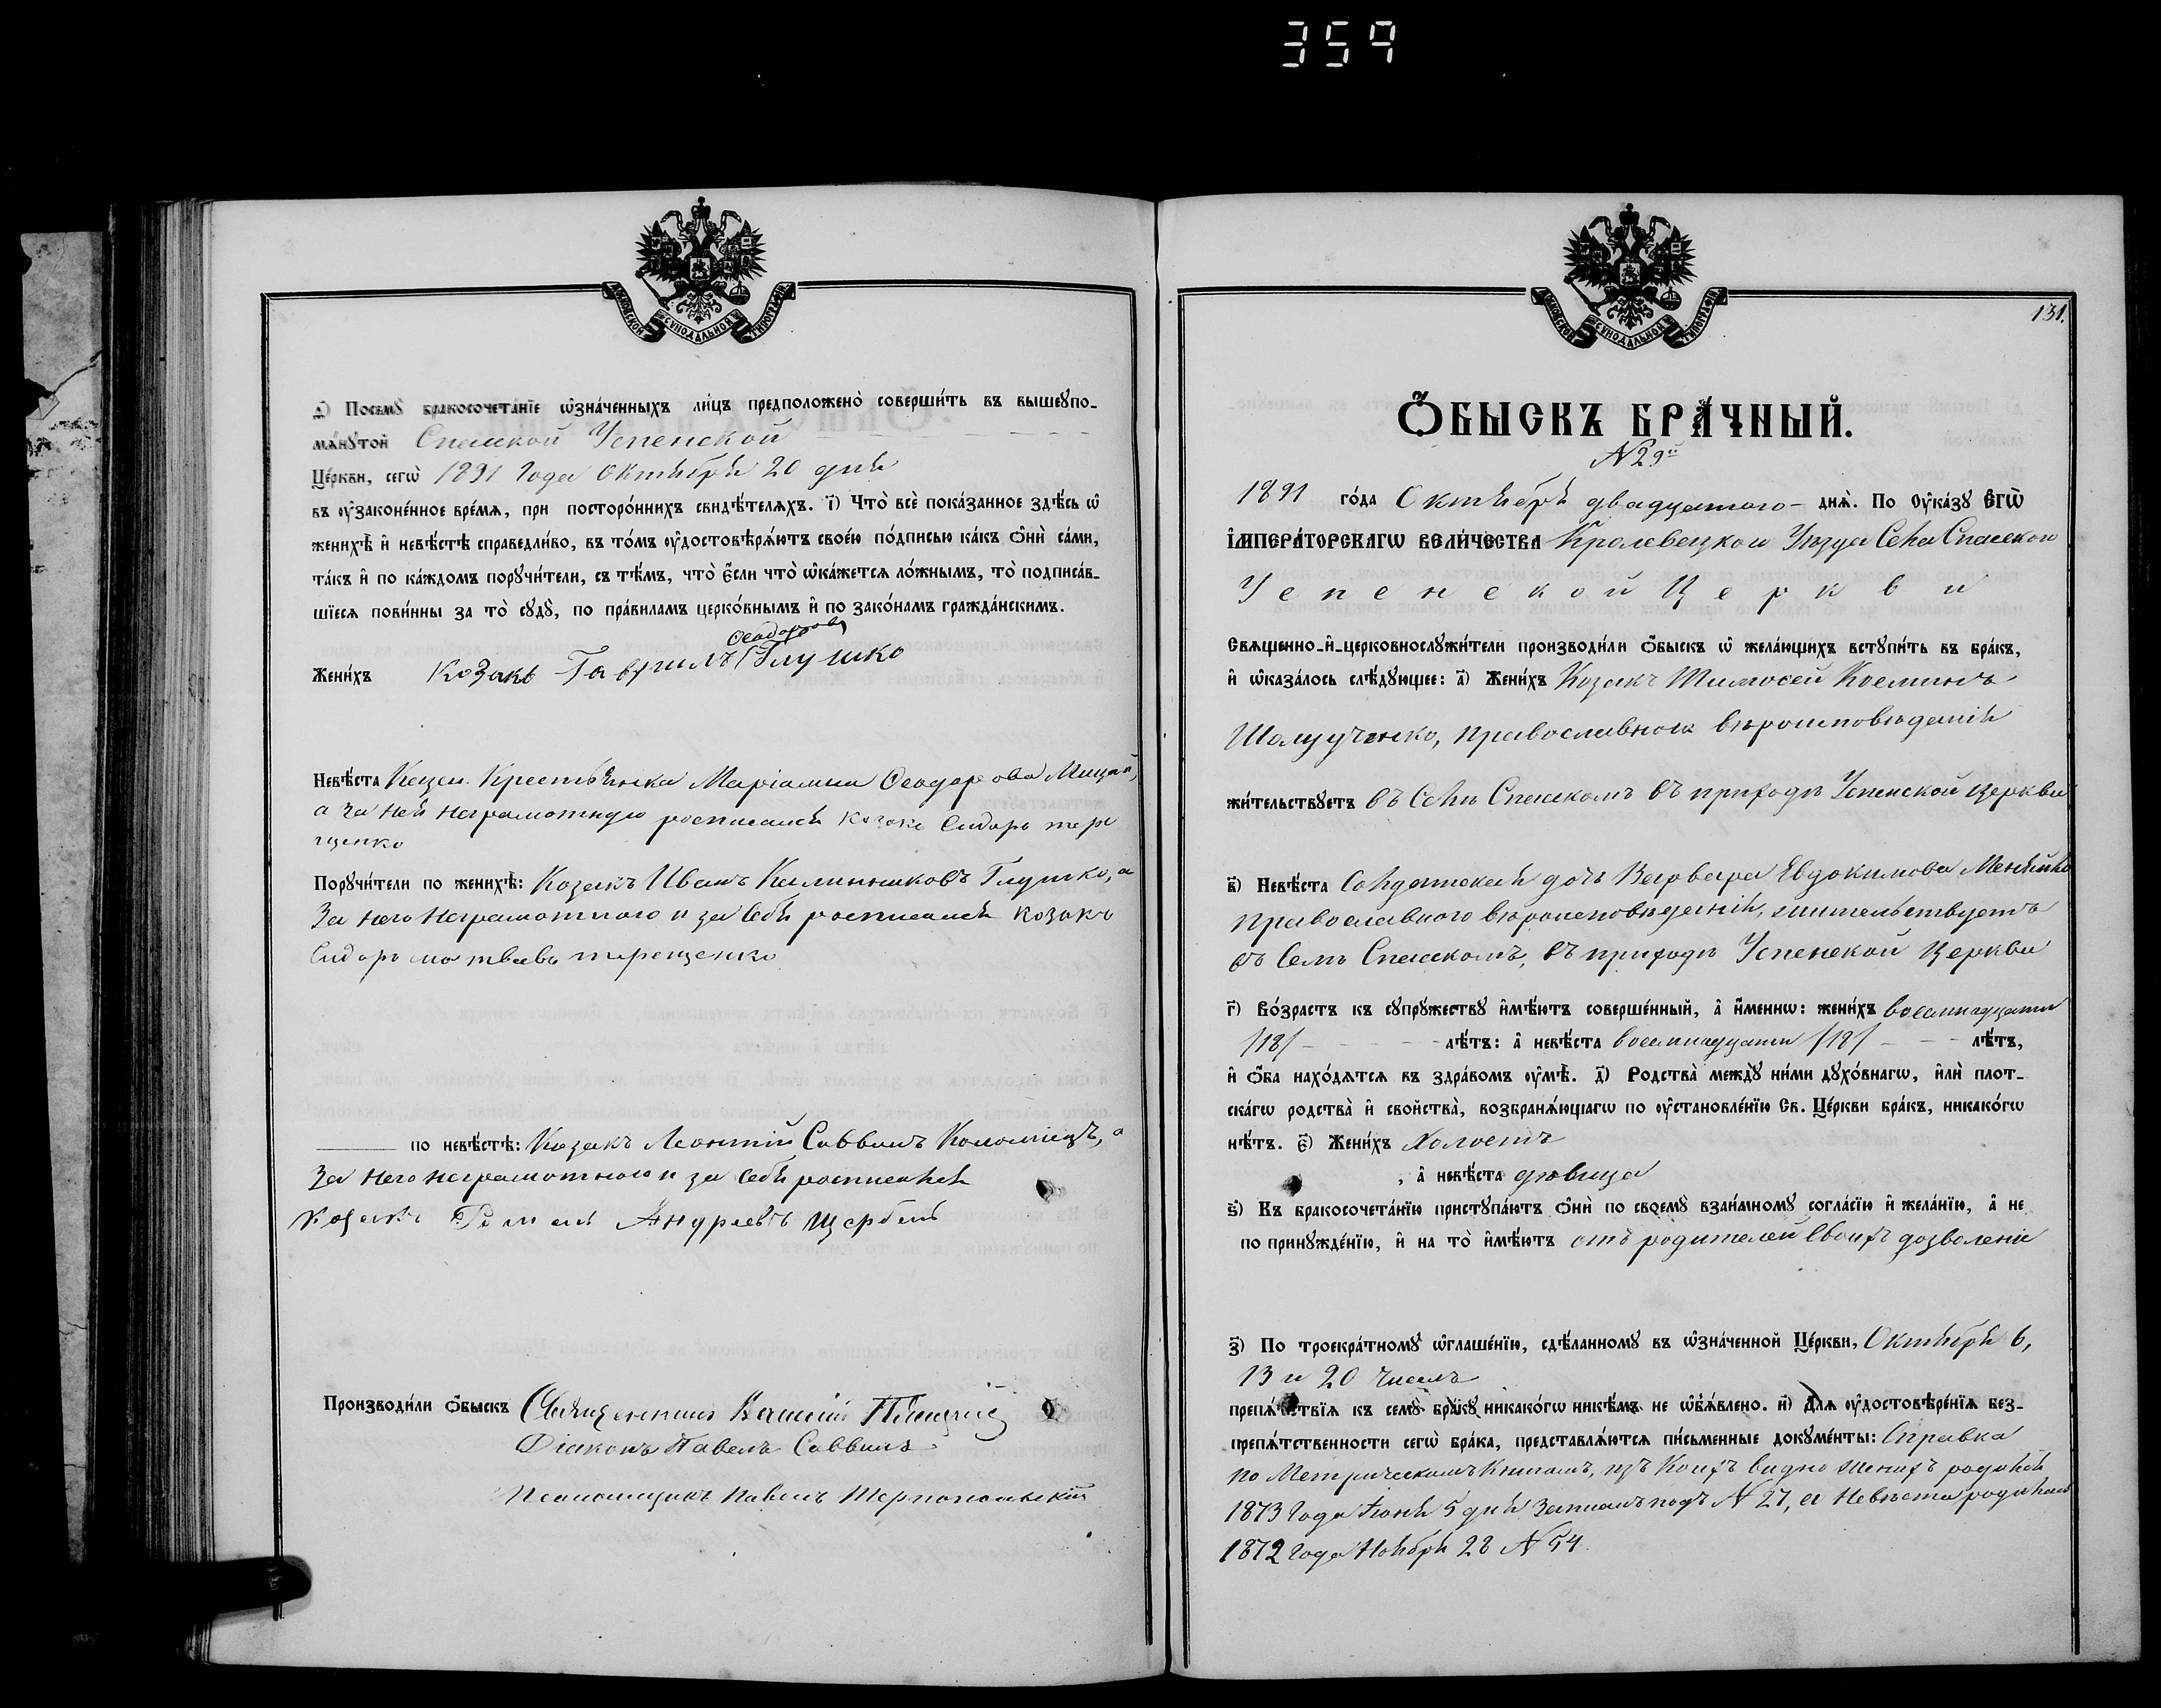 359
МОСКОВСКОЙ СѴНОДАЛЬНОЙ ТИПОГРАФІИ
ѳ҃) Посемꙋ̀ бракосочета́нїе ѡ҆зна́ченныхъ ли́цъ предположено̀ соверши́ть въ вышеꙋпо-
мѧ́нꙋтой Спасской Успенской
Це́ркви, сегѡ̀ 1891 года Октября 20 дня
въ ᲂу҆законе́нное вре́мѧ, при посторо́ннихъ свидѣ́телѧхъ. і҃) Что̀ всѐ пока́занное здѣ́сь ѡ҆
женихѣ̀ и҆ невѣ́стѣ справедли́во, въ то́мъ ᲂу҆достовѣрѧ́ютъ свое́ю по́дписью ка́къ ѻ҆нѝ са́ми,
та́къ и҆ по ка́ждомъ порꙋчи́тели, съ тѣ́мъ, что̀ є҆́сли что̀ ѡ҆ка́жетсѧ ло́жнымъ, то̀ подписа́в-
шїесѧ пови́нны за то̀ сꙋдꙋ̀, по пра́виламъ церко́внымъ и҆ по зако́намъ гражда́нскимъ.
Ѳеодоровъ
Жени́хъ Козакъ Гавриилъ Глушко
Невѣ́ста Казен. Крестьянка Маріамна Ѳеодорова Мицай,
а за ней неграмотную росписался козакъ Сидоръ тере
щенко
Порꙋчи́тели по женихѣ̀: Козакъ Иванъ Калиниковъ Глушко, а
За него неграмотного и за себя росписался козакъ
Сидоръ матвѣевъ терещенко
по невѣ́стѣ: Козакъ Леонтій Саввинъ Коломіецъ, а
За него неграмотного и за себя росписался
Козакъ Андреевъ Щербакъ
Производи́ли ѻ҆́быскъ Священникъ Василій
Діаконъ Павелъ Саввинъ
Псаломщикъ Павелъ Тернопольскій
МОСКОВСКОЙ СѴНОДАЛЬНОЙ ТИПОГРАФІИ
131.
Ѻ҆́БЫСКЪ БРА́ЧНЫЙ.
№ 29й
1891 го́да Октября двадцатого - днѧ̀. По Оу҆ка́зꙋ Є҆гѡ̀
І҆мпера́торскагѡ вели́чества Кролевецкого Уѣзда Села Спасского
Успенской Церкви
Свѧщенно-и҆-церковнослꙋжи́тели производи́ли ѻ҆́быскъ ѡ҆ жела́ющихъ встꙋпи́ть въ бра́къ,
и҆ ѡ҆каза́лось слѣ́дꙋющее: а҃) Жени́хъ Козакъ Тимоѳей Косминъ
Шолудченко, православного вѣроисповѣданія
жи́тельствꙋетъ въ Селѣ Спасскомъ въ приходѣ Успенской церкви
в҃) Невѣ́ста Солдатская дочь Варвара Евдокимова Меняйло
православного вѣроисповѣданія, жительствуетъ
въ Селѣ Спасскомъ, въ приходѣ Успенской Церкви
г҃) Во́зрастъ къ сꙋпрꙋ́жествꙋ и҆мѣ́ютъ соверше́нный, а҆ и҆́меннѡ: жени́хъ восемнадцати
/18/ - - - - лѣ́тъ: а҆ невѣ́ста восемнадцати /18/ - - - лѣ́тъ,
и҆ ѻ҆́ба нахо́дѧтсѧ въ здра́вомъ ᲂу҆мѣ̀. д҃) Родства̀ междꙋ̀ ни́ми дꙋхо́внагѡ, и҆лѝ плот-
ска́гѡ родства̀ и҆ свойства̀, возбранѧ́ющагѡ по ᲂу҆становле́нїю Св. Це́ркви бра́къ, никако́гѡ
нѣ́тъ. є҃) Жени́хъ Холостъ
, а҆ невѣ́ста дѣвица
ѕ҃) Къ бракосочета́нїю пристꙋпа́ютъ ѻ҆нѝ по своемꙋ̀ взаи́мномꙋ согла́сїю и҆ жела́нїю, а҆ не
по принꙋжде́нїю, и҆ на то̀ и҆мѣ́ютъ отъ родителей своихъ дозволеніе
з҃) По троекра́тномꙋ ѡ҆глаше́нїю, сдѣ́ланномꙋ въ ѡ҆зна́ченной Це́ркви, Октября 6,
13 и 20 чиселъ
препѧ́тствїѧ къ семꙋ̀ бра́кꙋ никако́гѡ никѣ́мъ не ѡ҆б̾ѧ́влено. и҃) Длѧ ᲂу҆достовѣре́нїѧ без-
препѧ́тственности сегѡ̀ бра́ка, представлѧ́ютсѧ пи́сьменные докꙋме́нты: Справка
по Метрическимъ Книгамъ, изъ коихъ видно женихъ родился
1873 года Іюня 5 дня записанъ подъ № 27, а Невѣста родилась
1872 года Ноября 28 № 54.